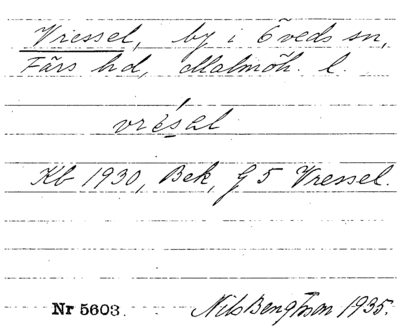 Vressel, by i Öveds sn,
Färs hd, Malmöh. l.
vrésəl
Kb 1930, Bek, G5 Vressel.
Nr 5603. Nils Bengtsson 1935.